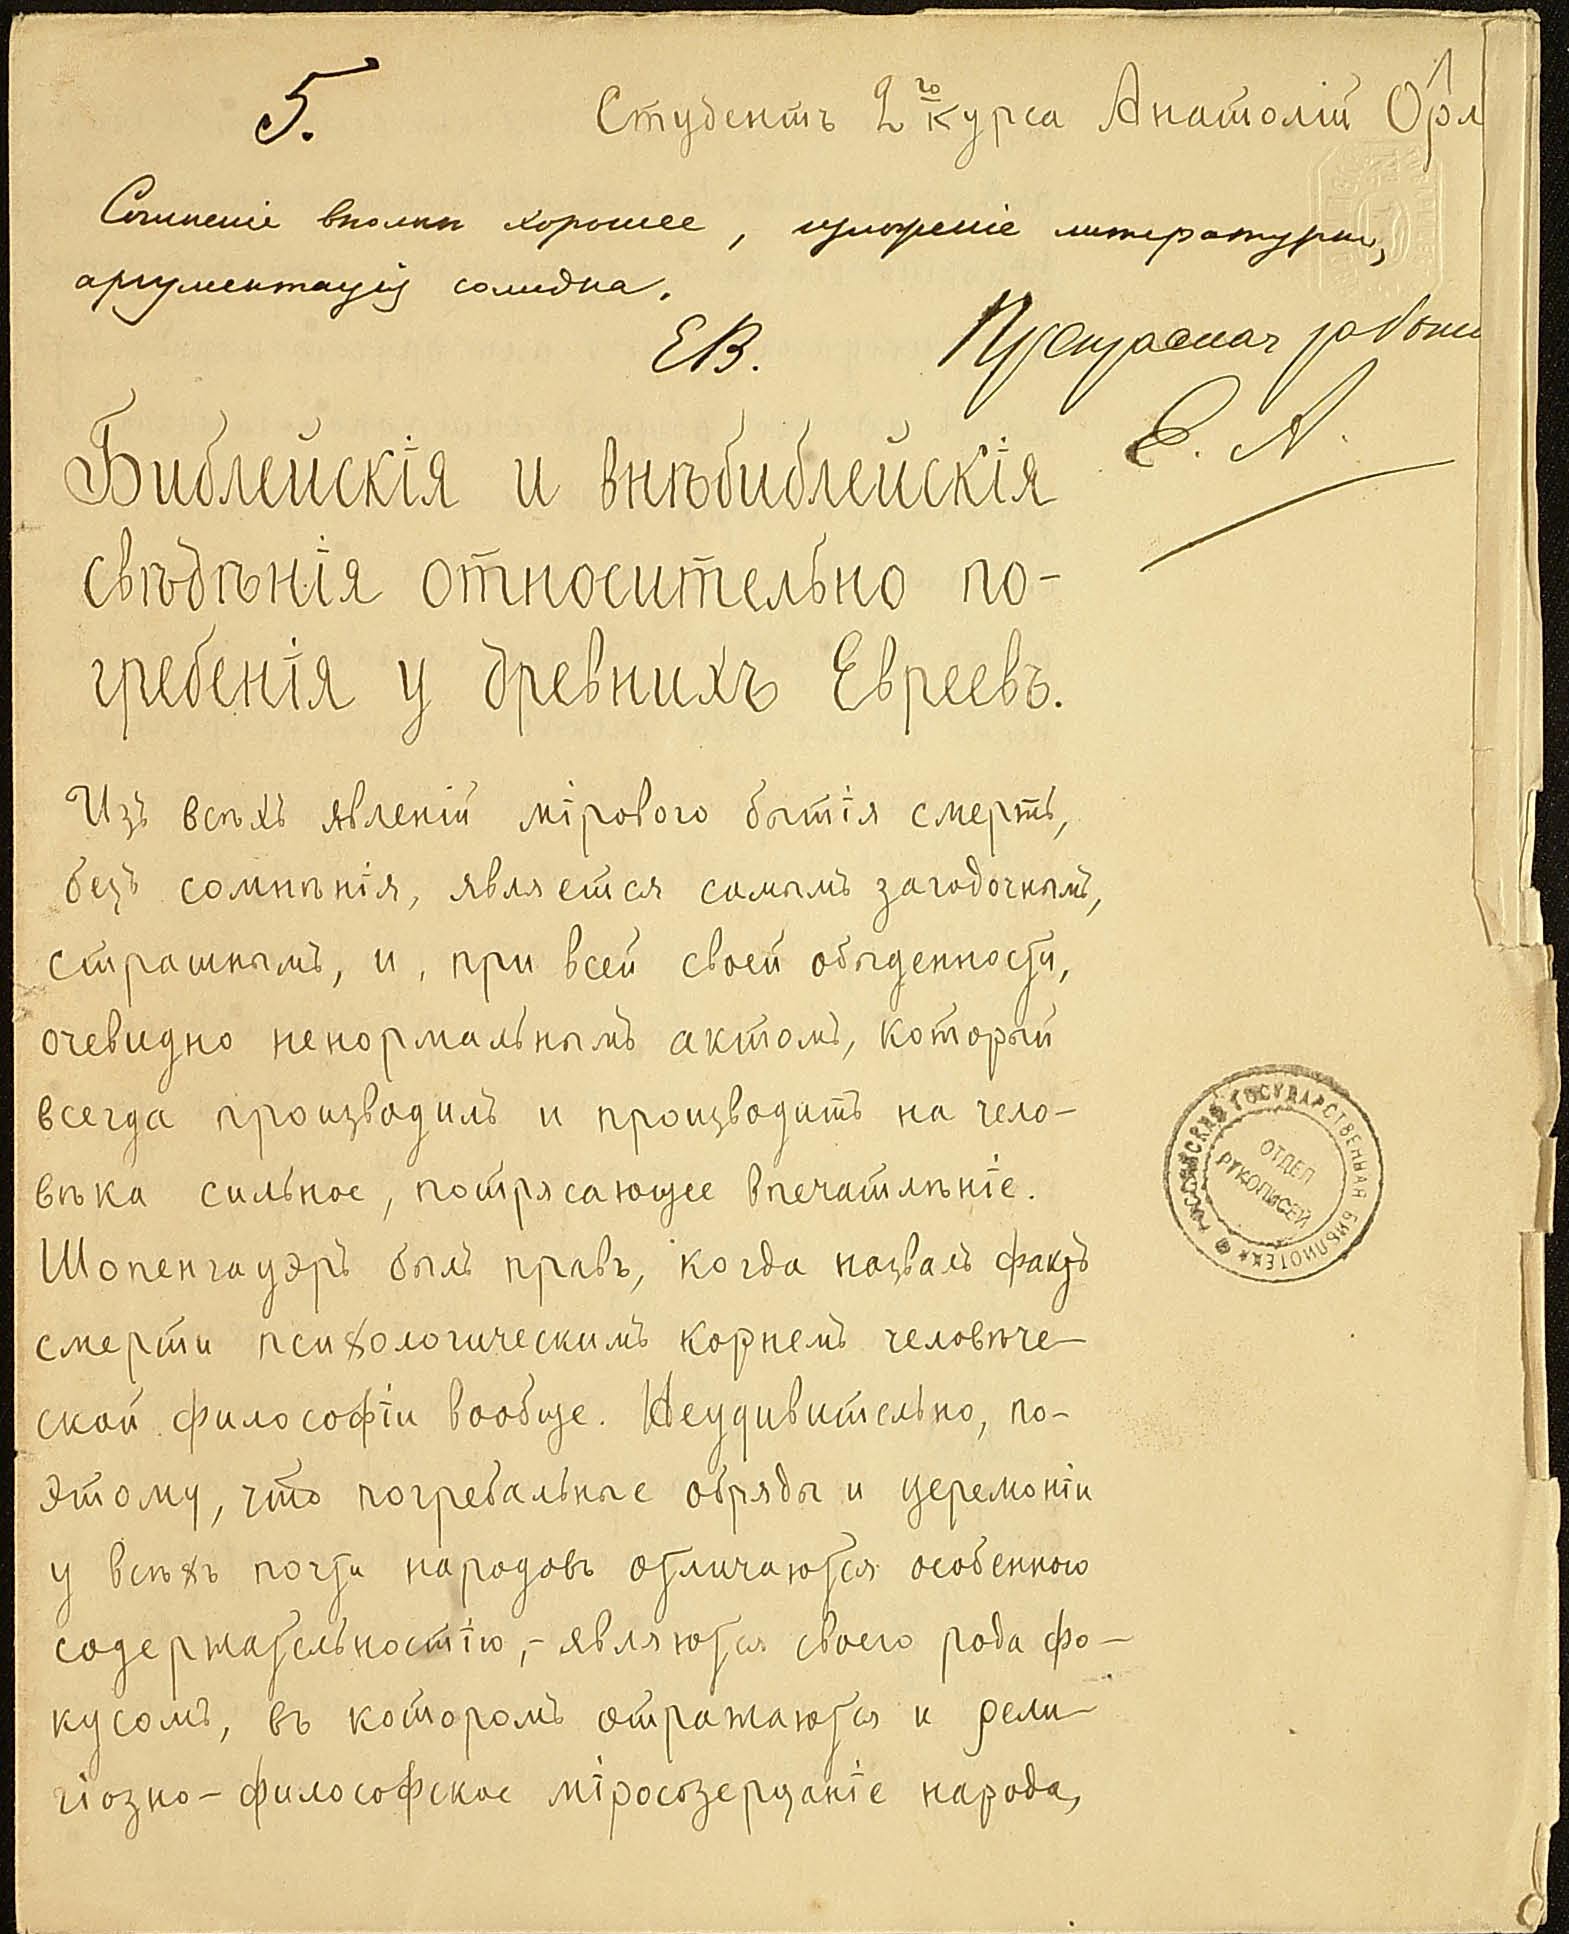 5.
Студентъ 2го курса Анатолій Орл
Сочиненіе вполнѣ хорошее, изложеніе литературно,
аргументація солидна.
ЕВ.
Прекрасная работа
Е. А.
Библейскія и внѣбиблейскія
свѣдѣнія относительно по-
гребенія у древнихъ Евреевъ.
Изъ всѣхъ явленій мірового бытія смерть,
безъ сомнѣнія, является самымъ загадочнымъ,
страшнымъ, и, при всей своей обыденности,
очевидно ненормальнымъ актомъ, который
всегда производилъ и производитъ на чело-
вѣка сильное, потрясающее впечатлѣніе.
Шопенгауэръ былъ правъ, когда назвалъ фактъ
смерти психологическимъ корнемъ человѣче-
ской философіи вообще. Неудивительно, по-
этому, что погребальные обряды и церемоніи
у всѣхъ почти народовъ отличаются особенною
содержательностію,- являются своего рода фо-
кусомъ, въ которомъ отражаются и рели-
гіозно-философское міросозерцаніе народа,
РОССИЙСКАЯ ГОСУДАРСТВЕННАЯ БИБЛИОТЕКА
ОТДЕЛ
РУКОПИСЕЙ